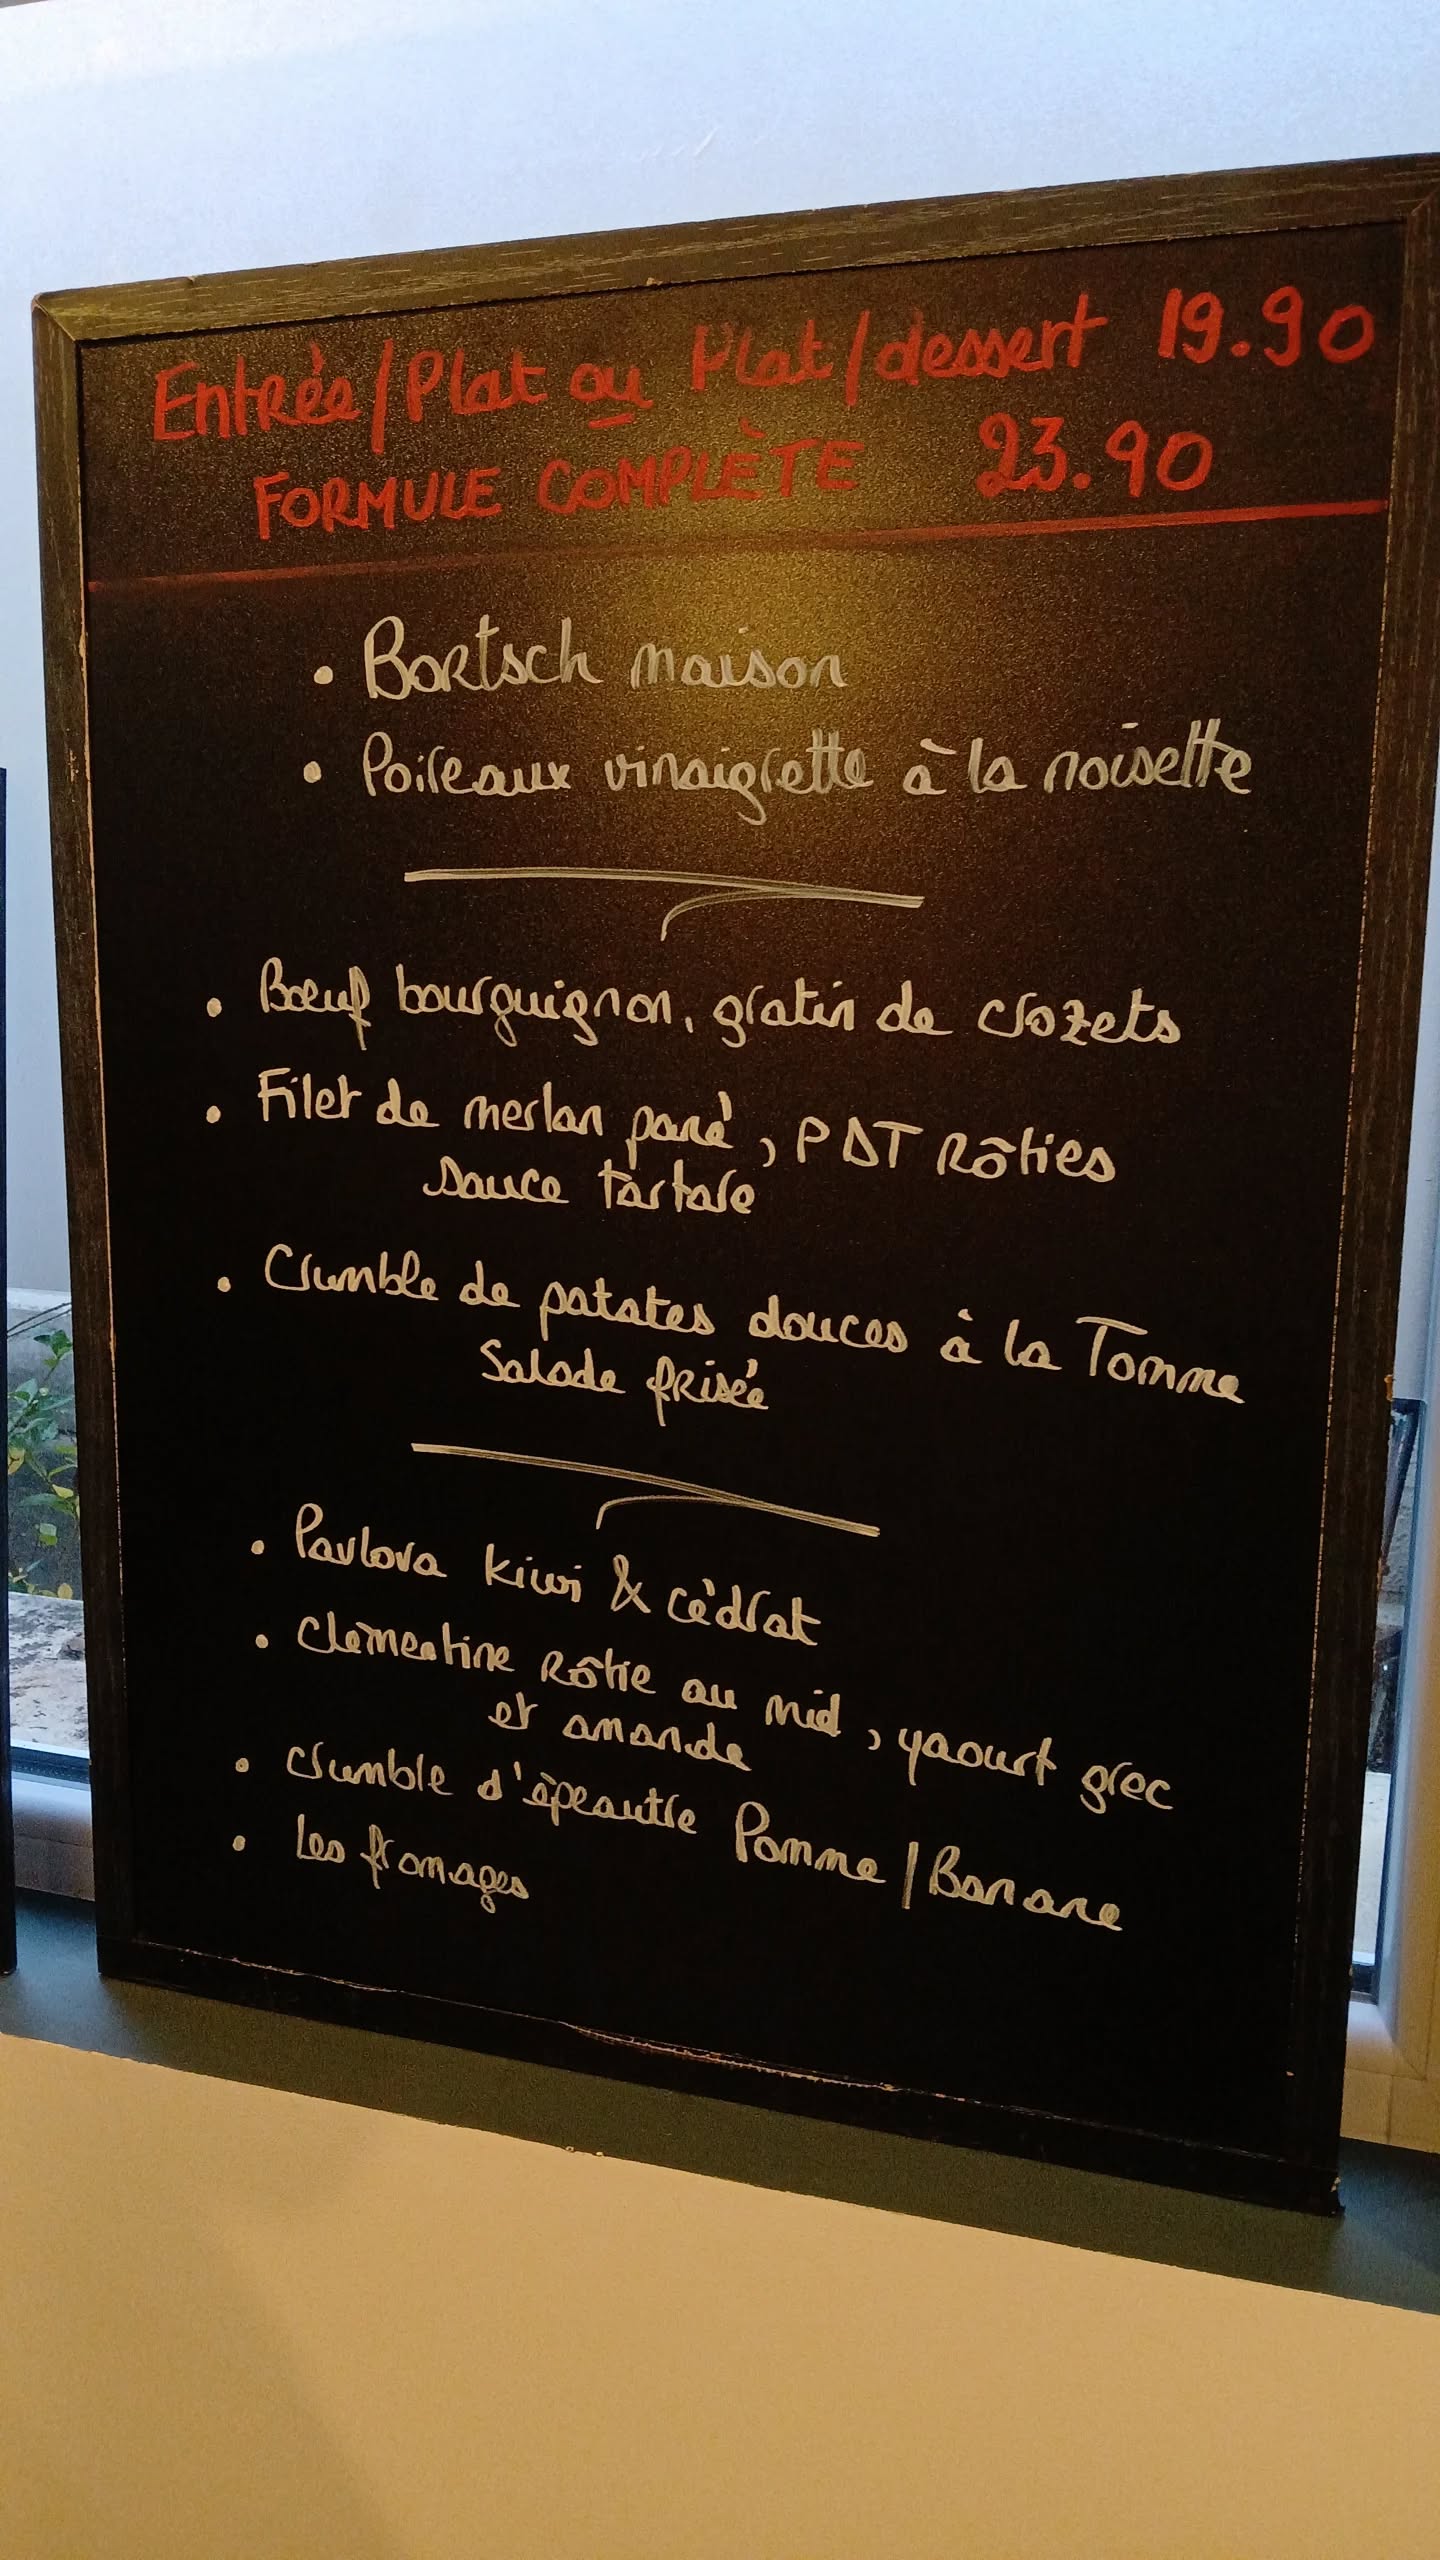 Entrée/Plat ou Plat/dessert 19.90
FORMULE COMPLÈTE 23.90
• Bortsch maison
• Poireaux vinaigrette à la noisette
• Bœuf bourguignon, gratin de crozets
• Filet de merlan pané, PDT Rôties
sauce tartare
• Crumble de patates douces à la Tomme
Salade frisée
• Pavlova kiwi & cédrat
• Clémentine rôtie au miel, yaourt grec
et amande
• Crumble d'épeautre Pomme/Banane
• Les fromages